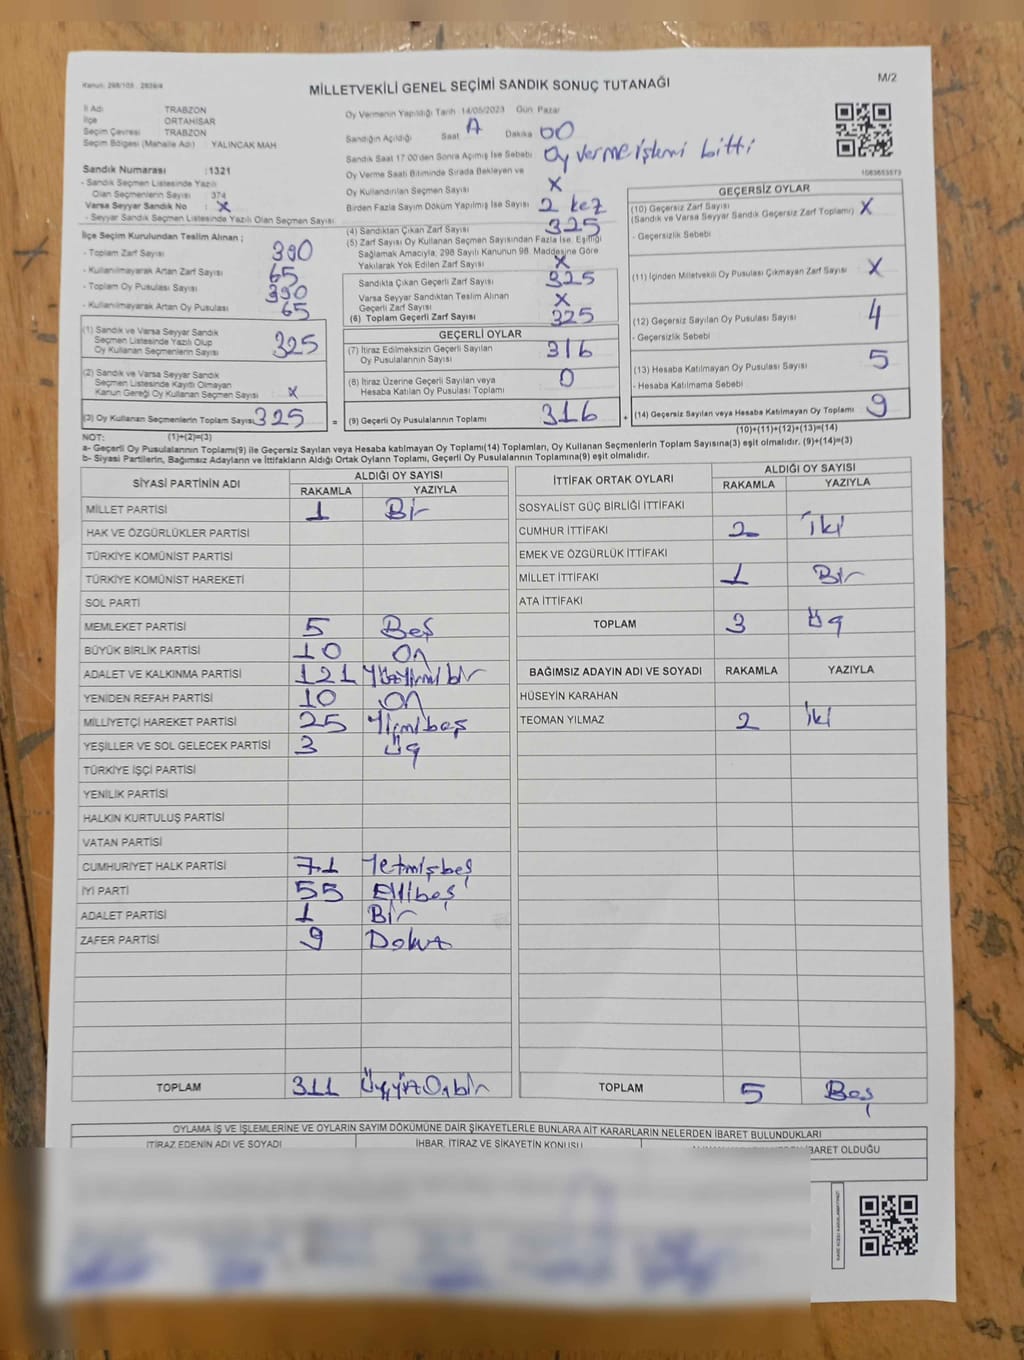 Kanun: 298/105 , 2839/4
MİLLETVEKİLİ GENEL SEÇİMİ SANDIK SONUÇ TUTANAĞI
M/2
İl Adı TRABZON
İlçe ORTAHİSAR
Seçim Çevresi TRABZON
Seçim Bölgesi (Mahalle Adı) : YALINCAK MAH
Oy Vermenin Yapıldığı Tarih :14/05/2023 Gün Pazar
Sandığın Açıldığı Saat A Dakika 00
Sandık Saat 17:00'den Sonra Açımış İse Sebebi Oy verme işlemi bitti
Oy Verme Saati Bitiminde Sırada Bekleyen ve
Oy Kullandırılan Seçmen Sayısı X
Birden Fazla Sayım Döküm Yapılmış İse Sayısı 2 kez
1083653573
Sandık Numarası :1321
- Sandık Seçmen Listesinde Yazılı
Olan Seçmenlerin Sayısı : 374
Varsa Seyyar Sandık No : X
- Seyyar Sandık Seçmen Listesinde Yazılı Olan Seçmen Sayısı
İlçe Seçim Kurulundan Teslim Alınan ;
- Toplam Zarf Sayısı 390
- Kullanılmayarak Artan Zarf Sayısı 65
- Toplam Oy Pusulası Sayısı 390
- Kullanılmayarak Artan Oy Pusulası 65
(1) Sandık ve Varsa Seyyar Sandık
Seçmen Listesinde Yazılı Olup
Oy Kullanan Seçmenlerin Sayısı 325
(2) Sandık ve Varsa Seyyar Sandık
Seçmen Listesinde Kayıtlı Olmayan
Kanun Gereği Oy Kullanan Seçmen Sayısı X
(3) Oy Kullanan Seçmenlerin Toplam Sayısı 325 =
(4) Sandıktan Çıkan Zarf Sayısı 325
(5) Zarf Sayısı Oy Kullanan Seçmen Sayısından Fazla İse, Eşitliği
Sağlamak Amacıyla, 298 Sayılı Kanunun 98. Maddesine Göre
Yakılarak Yok Edilen Zarf Sayısı X
Sandıkta Çıkan Geçerli Zarf Sayısı 325
Varsa Seyyar Sandıktan Teslim Alınan
Geçerli Zarf Sayısı X
(6) Toplam Geçerli Zarf Sayısı 325
GEÇERLİ OYLAR
(7) İtiraz Edilmeksizin Geçerli Sayılan
Oy Pusulalarının Sayısı 316
(8) İtiraz Üzerine Geçerli Sayılan veya
Hesaba Katılan Oy Pusulası Toplamı 0
(9) Geçerli Oy Pusulalarının Toplamı 316 +
GEÇERSİZ OYLAR
(10) Geçersiz Zarf Sayısı
(Sandık ve Varsa Seyyar Sandık Geçersiz Zarf Toplamı) X
- Geçersizlik Sebebi
(11) İçinden Milletvekili Oy Pusulası Çıkmayan Zarf Sayısı X
(12) Geçersiz Sayılan Oy Pusulası Sayısı 4
- Geçersizlik Sebebi
(13) Hesaba Katılmayan Oy Pusulası Sayısı 5
- Hesaba Katılmama Sebebi
(14) Geçersiz Sayılan veya Hesaba Katılmayan Oy Toplamı 9
NOT: (1)+(2)=(3)
(10)+(11)+(12)+(13)=(14)
a- Geçerli Oy Pusulalarının Toplamı(9) ile Geçersiz Sayılan veya Hesaba katılmayan Oy Toplamı(14) Toplamları, Oy Kullanan Seçmenlerin Toplam Sayısına(3) eşit olmalıdır. (9)+(14)=(3)
b- Siyasi Partilerin, Bağımsız Adayların ve İttifakların Aldığı Ortak Oyların Toplamı, Geçerli Oy Pusulalarının Toplamına(9) eşit olmalıdır.
SİYASİ PARTİNİN ADI ALDIĞI OY SAYISI
RAKAMLA YAZIYLA
MİLLET PARTİSİ 1 Bir
HAK VE ÖZGÜRLÜKLER PARTİSİ
TÜRKİYE KOMÜNİST PARTİSİ
TÜRKİYE KOMÜNİST HAREKETİ
SOL PARTİ
MEMLEKET PARTİSİ 5 Beş
BÜYÜK BİRLİK PARTİSİ 10 On
ADALET VE KALKINMA PARTİSİ 121 Yüzyirmibir
YENİDEN REFAH PARTİSİ 10 On
MİLLİYETÇİ HAREKET PARTİSİ 25 Yirmibeş
YEŞİLLER VE SOL GELECEK PARTİSİ 3 Üç
TÜRKİYE İŞÇİ PARTİSİ
YENİLİK PARTİSİ
HALKIN KURTULUŞ PARTİSİ
VATAN PARTİSİ
CUMHURİYET HALK PARTİSİ 71 Yetmişbeş
İYİ PARTİ 55 Ellibeş
ADALET PARTİSİ 1 Bir
ZAFER PARTİSİ 9 Dokuz
TOPLAM 311 ÜçyüzOnbir
İTTİFAK ORTAK OYLARI ALDIĞI OY SAYISI
RAKAMLA YAZIYLA
SOSYALİST GÜÇ BİRLİĞİ İTTİFAKI
CUMHUR İTTİFAKI 2 İki
EMEK VE ÖZGÜRLÜK İTTİFAKI
MİLLET İTTİFAKI 1 Bir
ATA İTTİFAKI
TOPLAM 3 Üç
BAĞIMSIZ ADAYIN ADI VE SOYADI RAKAMLA YAZIYLA
HÜSEYİN KARAHAN
TEOMAN YILMAZ 2 İki
TOPLAM 5 Beş
OYLAMA İŞ VE İŞLEMLERİNE VE OYLARIN SAYIM DÖKÜMÜNE DAİR ŞİKAYETLERLE BUNLARA AİT KARARLARIN NELERDEN İBARET BULUNDUKLARI
İTİRAZ EDENİN ADI VE SOYADI İHBAR, İTİRAZ VE ŞİKAYETİN KONUSU İBARET OLDUĞU